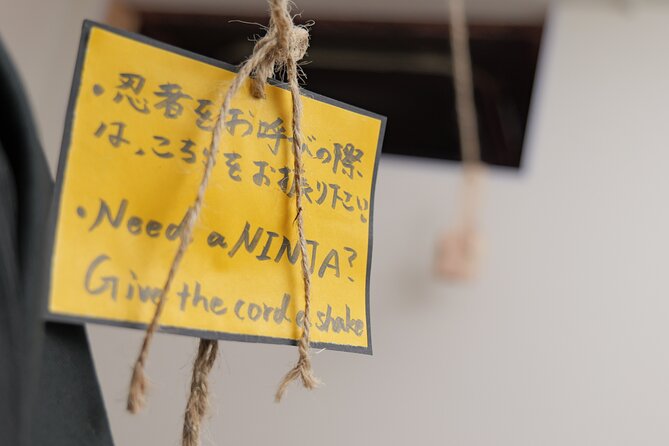 ・忍者をお呼びの際
は、こちらをお振り下さい
・Need a NINJA?
Give the cord a shake